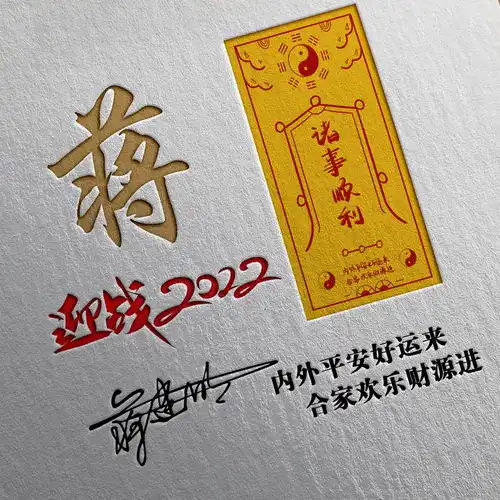 蒋
诸事顺利
内外平安好运来
合家欢乐财源进
迎战2022
内外平安好运来
合家欢乐财源进